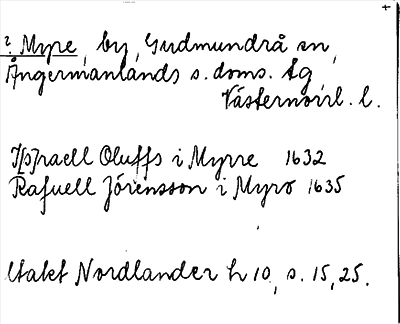 ? Myre, by, Gudmundrå sn,
Ångermanlands s. doms. tg,
Västernorrl. l.
I[s]raell Oluffs i Myrre 1632
Rafuell Jörensson i Myro 1635
Utakt Nordlander h 10, s. 15, 25.